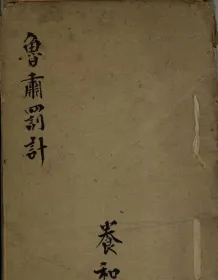 魯肅罰計
養和